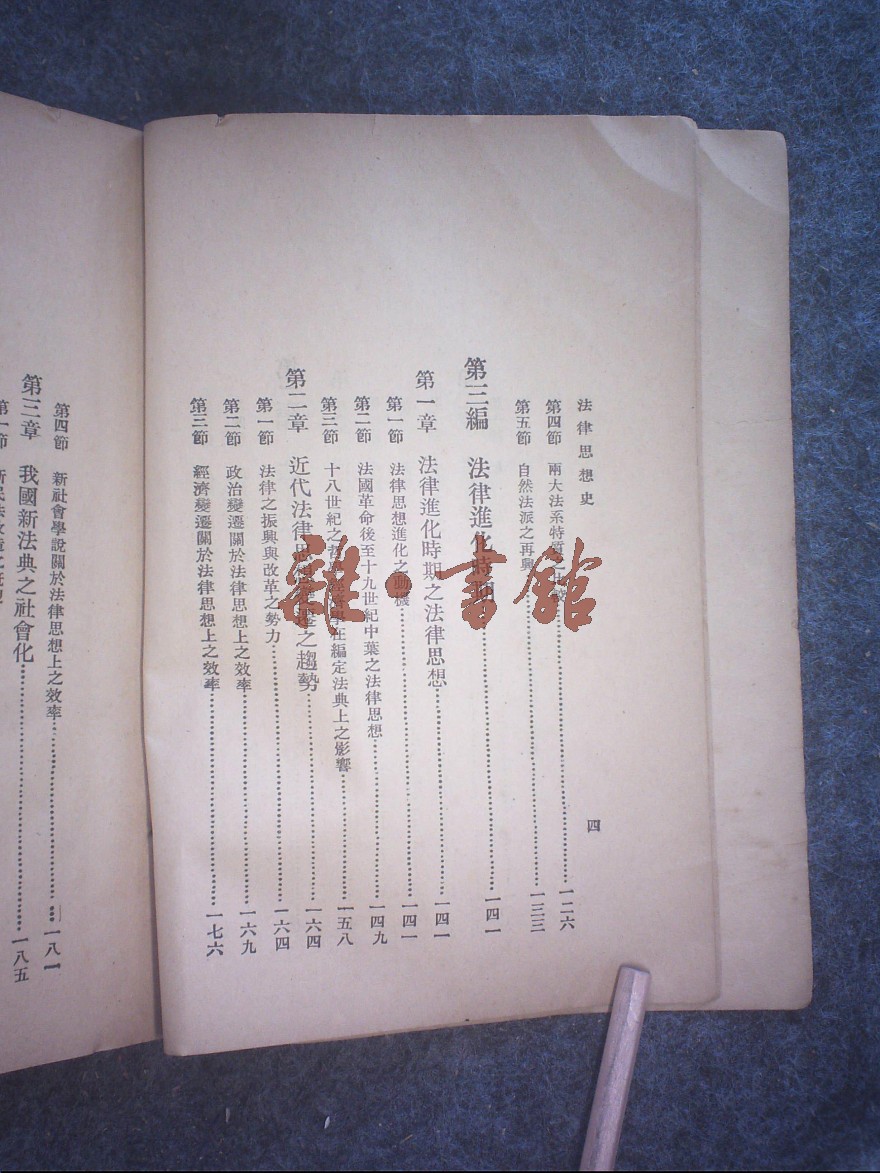 法律思想史
四
第四節 兩大法系特質之比較…一二六
第五節 自然法派之再興…一三三
第三編 法律進化時期…一四一
第一章 法律進化時期之法律思想…一四一
第一節 法律思想進化之動機…一四一
第二節 法國革命後至十九世紀中葉之法律思想…一四九
第三節 十八世紀之哲學經濟學在編定法典上之影響…一五八
第二章 近代法律思想之趨勢…一六四
第一節 法律之振興與改革之勢力…一六四
第二節 政治變遷關於法律思想上之效率…一六九
第三節 經濟變遷關於法律思想上之效率…一七六
第四節 新社會學說關於法律思想上之效率…一八一
第三章 我國新法典之社會化…一八五
第一節
雜·書館